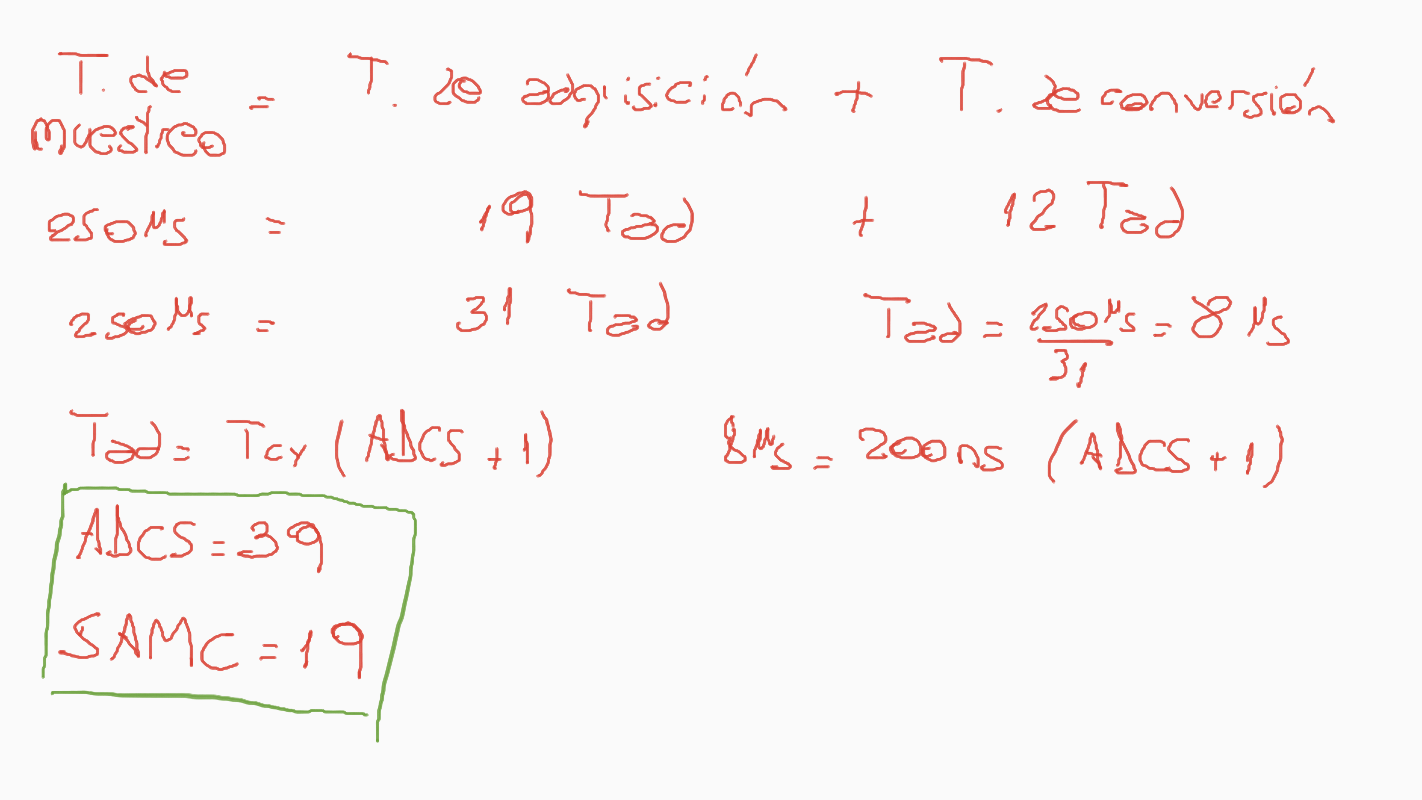 T. de muestreo = T. de adquisición + T. de conversión
250 µs = 19 Tad + 12 Tad
250 µs = 31 Tad Tad = 250 µs / 31 = 8 µs
Tad = Tcy (ADCS + 1) 8 µs = 200 ns (ADCS + 1)
ADCS = 39
SAMC = 19